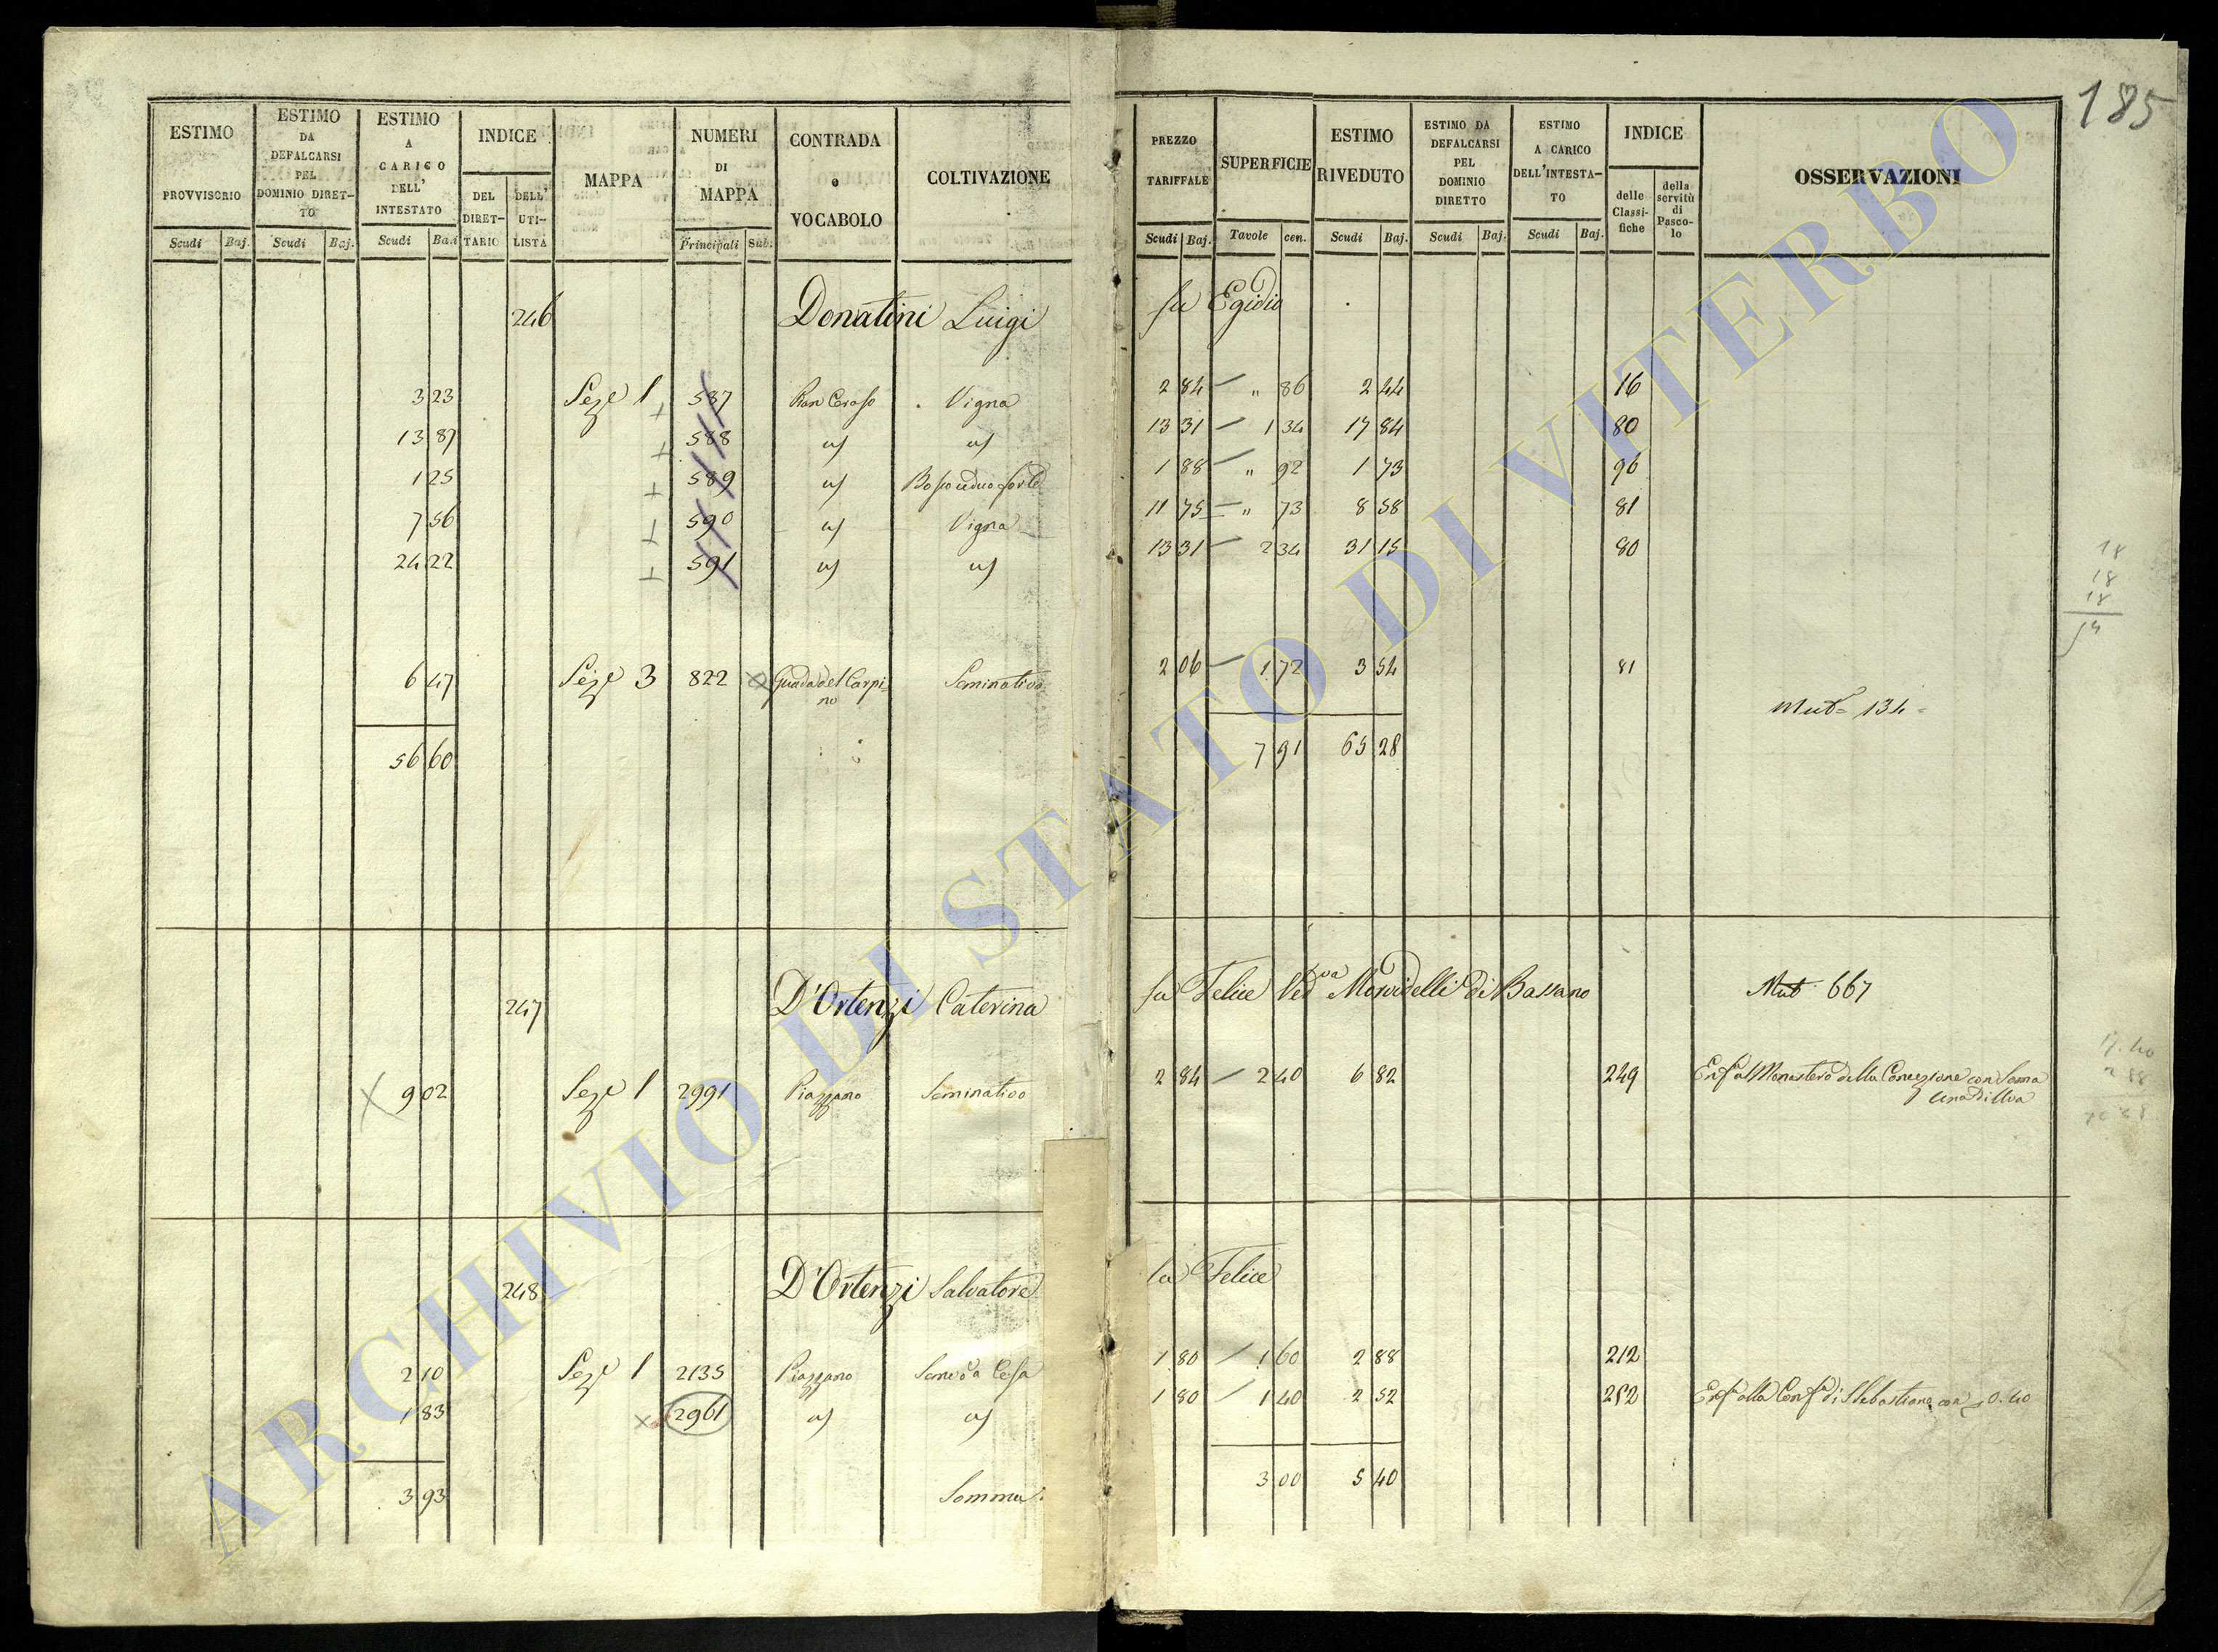 185
ESTIMO PROVVISORIO Scudi Baj.
ESTIMO DA DEFALCARSI PEL DOMINIO DIRETTO Scudi Baj.
ESTIMO A CARICO DELL' INTESTATO Scudi Baj
INDICE DEL DIRETTARIO DELL' UTILISTA
MAPPA
NUMERI DI MAPPA Principali Sub.
CONTRADA o VOCABOLO
COLTIVAZIONE
PREZZO TARIFFALE Scudi Baj.
SUPERFICIE Tavole cen.
ESTIMO RIVEDUTO Scudi Baj.
ESTIMO DA DEFALCARSI PEL DOMINIO DIRETTO Scudi Baj.
ESTIMO A CARICO DELL'INTESTATO Scudi Baj.
INDICE delle Classifiche della servitù di Pascolo
OSSERVAZIONI
246 Donatini Luigi fu Egidio
3 23 Seze 1 587 Pian Ceraso Vigna 2 84 " 86 2 44 16
13 87 588 13 31 1 34 17 84 80
1 25 589 Bosco ceduo forte 1 88 " 92 1 73 96
7 56 590 Vigna 11 75 " 73 8 58 81
24 22 591 13 31 2 34 31 15 80
6 47 Seze 3 822 Guado del Carpino Seminativo 2 06 1 72 3 54 81
Mut= 134=
56 60 7 91 65 28
247 D'Ortenzi Caterina fu Felice Ved.va Morvidelli di Bassano Mut 667
9 02 Seze 1 2991 Piazzano Seminativo 2 84 2 40 6 82 249 Enfa al Monastero della Concezione con Soma una di Uva
248 D'Ortenzi Salvatore fu Felice
2 10 Seze 1 2135 Piazzano 1 80 1 60 2 88 212
1 83 2961 1 80 1 40 2 52 252 Enfa alla Confa di S Sebastiano con 0.40
3 93 Somma 3 00 5 40
18
18
18
54
ARCHIVIO DI STATO DI VITERBO